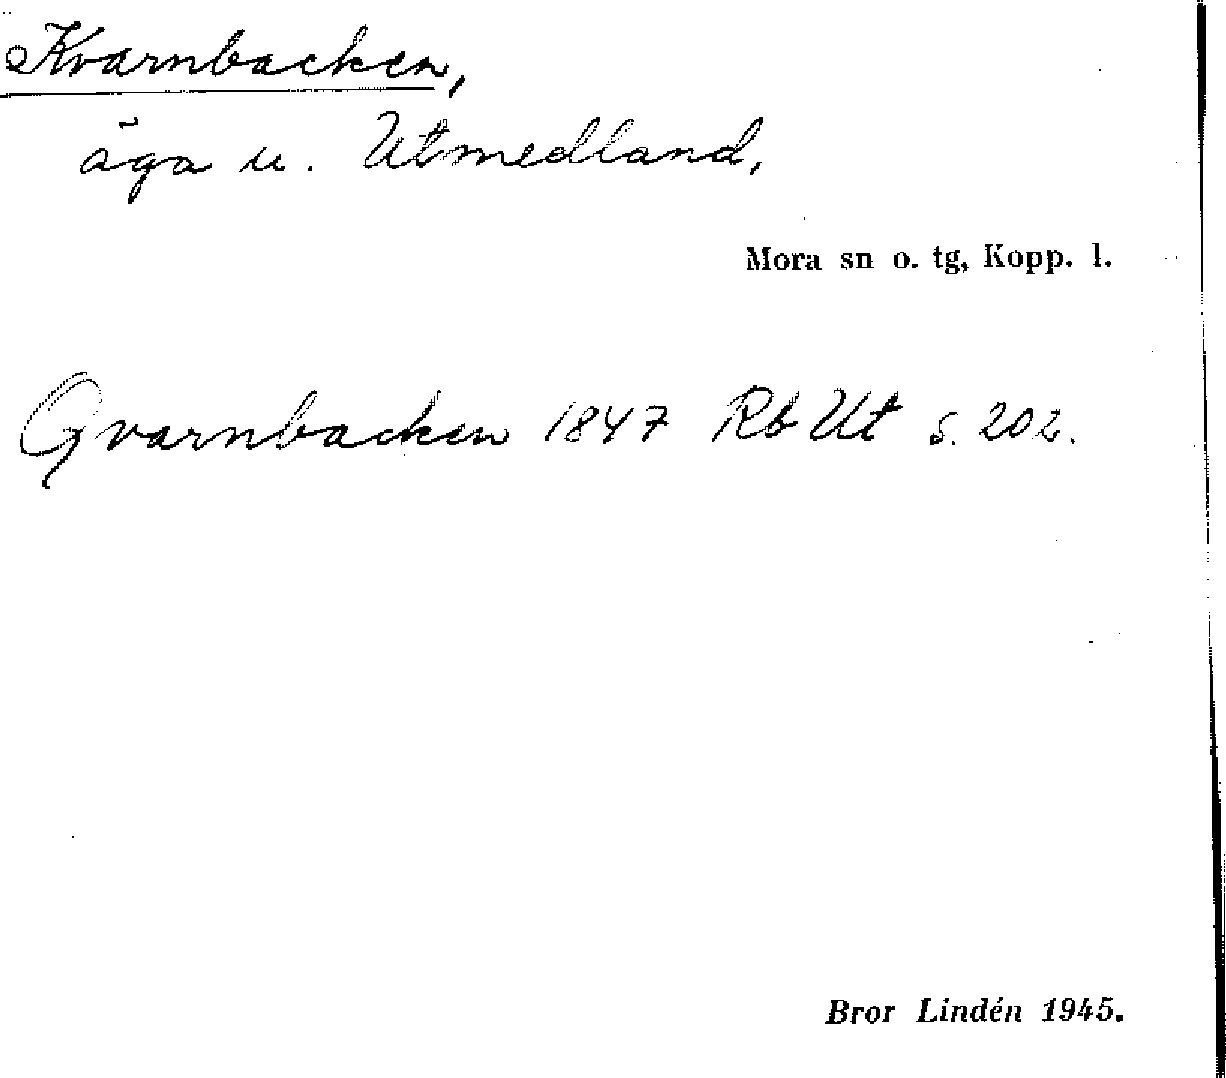 Kvarnbacken,
äga u. Utmedland,
Mora sn o. tg, Kopp. l.
Qvarnbacken 1847 Rb Ut s. 202.
Bror Lindén 1945.